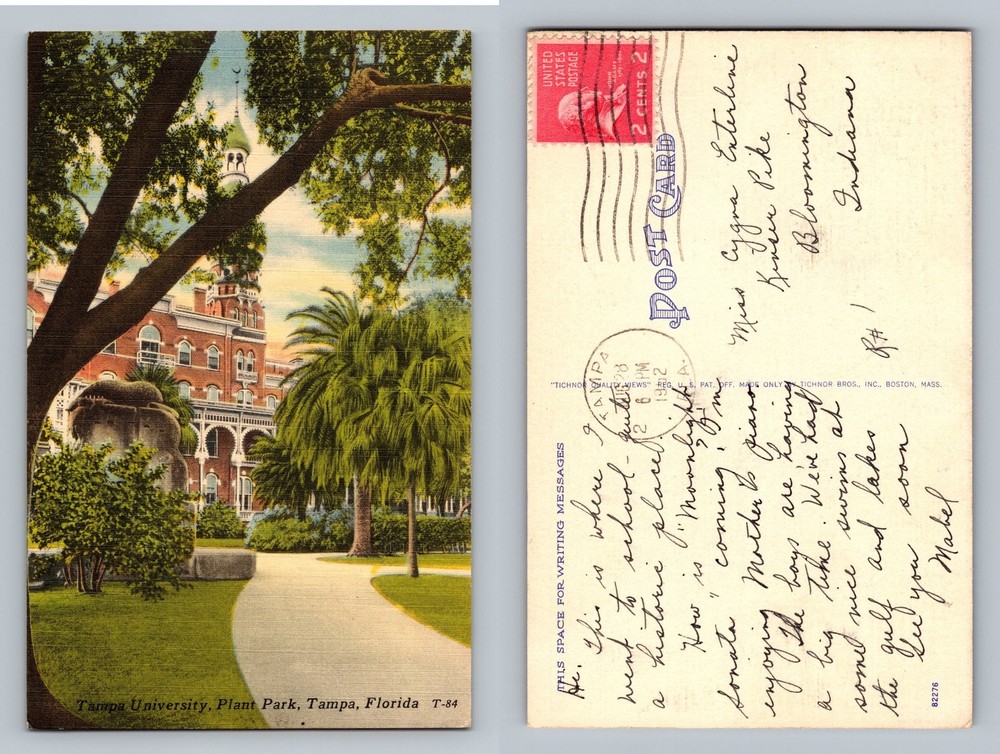 Tampa University, Plant Park, Tampa, Florida T-84
UNITED
STATES
POSTAGE
2 CENTS 2
POST CARD
TAMPA
28
6 PM
1952
Miss Cygra Enterline
Kinser Pike
Bloomington
Indiana
RH 1
"TICHNOR QUALITY VIEWS" REG. U. S. PAT. OFF. MADE ONLY BY TICHNOR BROS., INC., BOSTON, MASS.
THIS SPACE FOR WRITING MESSAGES
Hi. This is where I
went to school - quite
a historic place.
How is "Moonlight
Sonata" coming? I'm
enjoying Mother's piano
The boys are having
a big time. We've had
some nice swims at
the gulf and lakes
See you soon
Mabel
82276